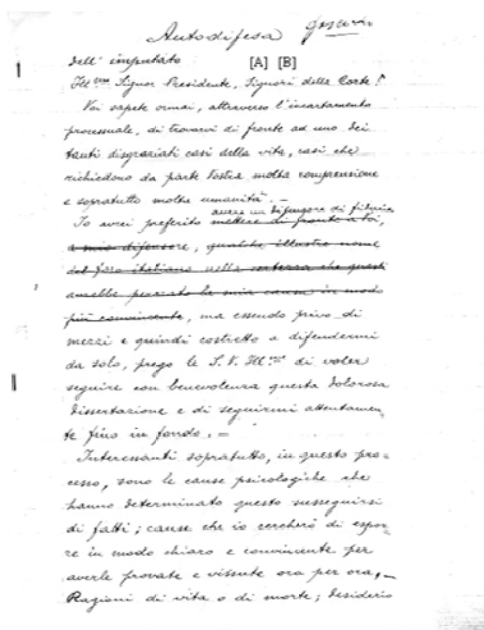 Autodifesa
dell' imputato [A] [B]
Ill.mo Signor Presidente, Signori della Corte!
Voi sapete ormai, attraverso l'incartamento
processuale, di trovarvi di fronte ad uno dei
tanti disgraziati casi della vita, casi che
richiedono da parte Vostra molta comprensione
e sopratutto molta umanità. —
avere un difensore di fiducia
Io avrei preferito mettere di fronte a voi,
a mio difensore, qualche illustre nome
del foro italiano nella certezza che questi
avrebbe perorato la mia causa in modo
più convincente, ma essendo privo di
mezzi e quindi costretto a difendermi
da solo, prego le S. V. Ill.me di voler
seguire con benevolenza questa dolorosa
dissertazione e di seguirmi attentamen-
te fino in fondo. —
Interessanti sopratutto, in questo pro-
cesso, sono le cause psicologiche che
hanno determinato questo susseguirsi
di fatti; cause che io cercherò di espor-
re in modo chiaro e convincente per
averle provate e vissute ora per ora, —
Ragioni di vita o di morte; desiderio